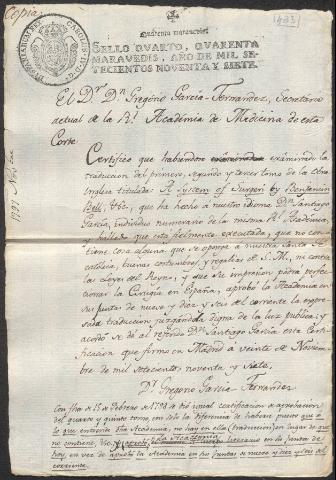 Copia
Quarenta maravedis
SELLO QVARTO, QVARENTA
MARAVEDIS, AÑO DE MIL SE-
TECIENTOS NOVENTA Y SIETE.
El D.r D.n Gregorio Garcia-Fernandez, Secretario
actual de la R.l Academia de Medicina de esta
Corte.
Certifico que habiendose examinado la
traduccion del primero, segundo y tercer tomo de la Obra
Inglesa titulada: A System of Surgery by Benjamin
Bell, que ha hecho a nuestro idioma D.n Santiago
Garcia, individuo numerario de la misma R.l Academia,
y hallado que está fielmente executada, que no con-
tiene cosa alguna que se oponga a nuestra Santa Fe
catolica, buenas costumbres, y regalias de S.M. ni contra
las Leyes del Reyno, y que su impresion podra perfec-
cionar la Cirugia en España, aprobó la Academia en
sus juntas de nueve y diez y seis del corriente la expre-
sada traduccion juzgandola digna de la luz publica; y
acordó se dé al referido D.n Santiago Garcia esta Certi-
ficacion que firmo en Madrid a veinte de Noviem-
bre de mil setecientos noventa y siete.
D.r Gregorio Garcia Fernandez
Con fha de 15 de Febrero de 1798 se dió igual certificacion de aprobacion
del quarto y quinto tomo con sola la diferencia de haberse puesto que a
lo que entiende dha Academia, no hay en ella (traduccion) en lugar de que
no contiene,
la Academia
hoy, en vez de aprobó la Academia en sus juntas de nueve y diez y seis del
corriente.
1797 Nov.bre